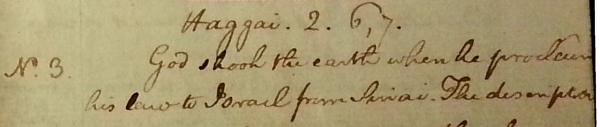 Haggai. 2. 6,7.
No. 3. God shook the earth when he proclaim
his law to Israel from Sinai. The description